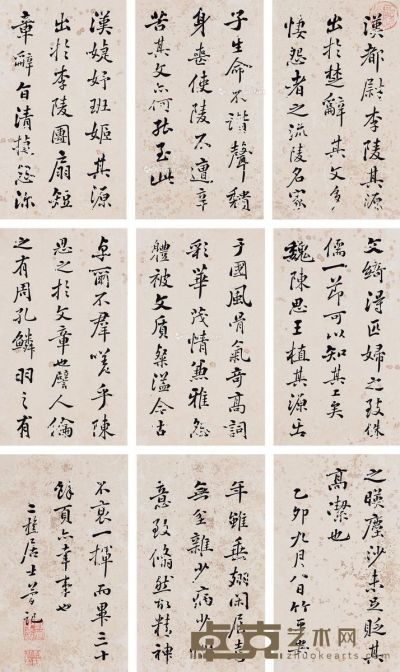 漢都尉李陵其源
出於楚辭其文多
悽怨者之流陵名家
子生命不諧聲頹
身喪使陵不遭辛
苦其文亦何能至此
漢婕妤班姬其源
出於李陵團扇短
章辭旨清捷怨深
文綺得匹婦之致侏
儒一節可以知其工矣
魏陳思王植其源出
于國風骨氣奇高詞
彩華茂情兼雅怨
體被文質粲溢今古
卓爾不群嗟乎陳
思之於文章也譬人倫
之有周孔鱗羽之有
之暎塵沙未足貶其
高潔也
乙卯九月八日竹
年雖垂翅閒居幸
無雜少病少
意致翛然故精神
不衰一揮而畢三十
餘頁亦幸事也
二居士記
卓克艺术网
www.zhuokearts.com